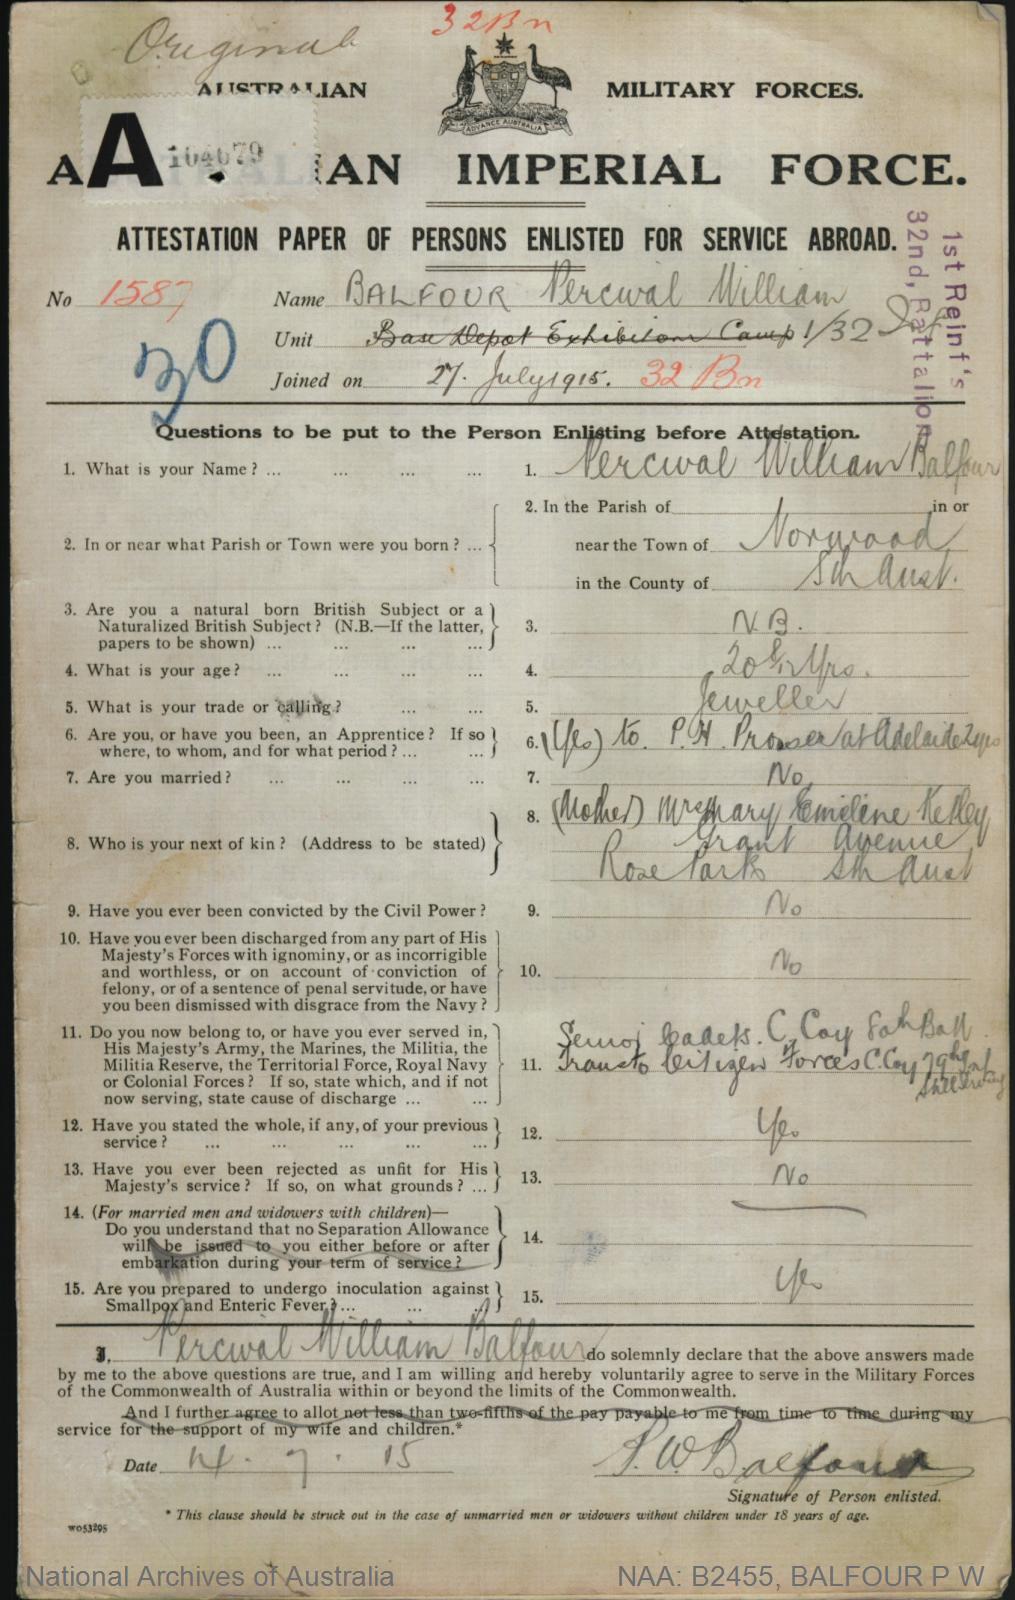 Original
32Bn
AUSTRALIAN MILITARY FORCES.
ADVANCE AUSTRALIA
A 104679
A IAN IMPERIAL FORCE.
ATTESTATION PAPER OF PERSONS ENLISTED FOR SERVICE ABROAD.
1st Reinf's
32nd, Battalion
No 1587 Name BALFOUR Percival William
30
Unit Base Depot Exhibition Camp 1/32
Joined on 27. July 1915. 32 Bn
Questions to be put to the Person Enlisting before Attestation.
1. What is your Name? ... ... ... ... 1. Percival William Balfour
2. In or near what Parish or Town were you born? ... 2. In the Parish of in or
near the Town of Norwood
in the County of Sth Aust.
3. Are you a natural born British Subject or a
Naturalized British Subject? (N.B.—If the latter,
papers to be shown) ... ... ... ... 3. N.B.
4. What is your age? ... ... ... ... 4. 20 8/12 Yrs.
5. What is your trade or calling? ... ... 5. Jeweller
6. Are you, or have you been, an Apprentice? If so
where, to whom, and for what period? ... ... 6. (Yes) to. P. H. Prosser at Adelaide 2 yrs
7. Are you married? ... ... ... ... 7. No
8. Who is your next of kin? (Address to be stated) 8. (Mother) Mrs Mary Emiline
Grant Avenue
Rose Park Sth Aust
9. Have you ever been convicted by the Civil Power? 9. No
10. Have you ever been discharged from any part of His
Majesty's Forces with ignominy, or as incorrigible
and worthless, or on account of conviction of
felony, or of a sentence of penal servitude, or have
you been dismissed with disgrace from the Navy? 10. No
11. Do you now belong to, or have you ever served in,
His Majesty's Army, the Marines, the Militia, the
Militia Reserve, the Territorial Force, Royal Navy
or Colonial Forces? If so, state which, and if not
now serving, state cause of discharge ... ... 11. Senior Cadets. C Coy 80th Batt
Trans to Citizen Forces C. Coy 79th Inf
Still Serving
12. Have you stated the whole, if any, of your previous
service? ... ... ... ... 12. Yes
13. Have you ever been rejected as unfit for His
Majesty's service? If so, on what grounds? ... 13. No
14. (For married men and widowers with children)—
Do you understand that no Separation Allowance
will be issued to you either before or after
embarkation during your term of service? 14.
15. Are you prepared to undergo inoculation against
Smallpox and Enteric Fever? ... ... ... 15. Yes
I, Percival William Balfour do solemnly declare that the above answers made
by me to the above questions are true, and I am willing and hereby voluntarily agree to serve in the Military Forces
of the Commonwealth of Australia within or beyond the limits of the Commonwealth.
And I further agree to allot not less than two-fifths of the pay payable to me from time to time during my
service for the support of my wife and children.*
Date 14. 7. 15 P. W. Balfour
Signature of Person enlisted.
* This clause should be struck out in the case of unmarried men or widowers without children under 18 years of age.
WO53295
National Archives of Australia NAA: B2455, BALFOUR P W